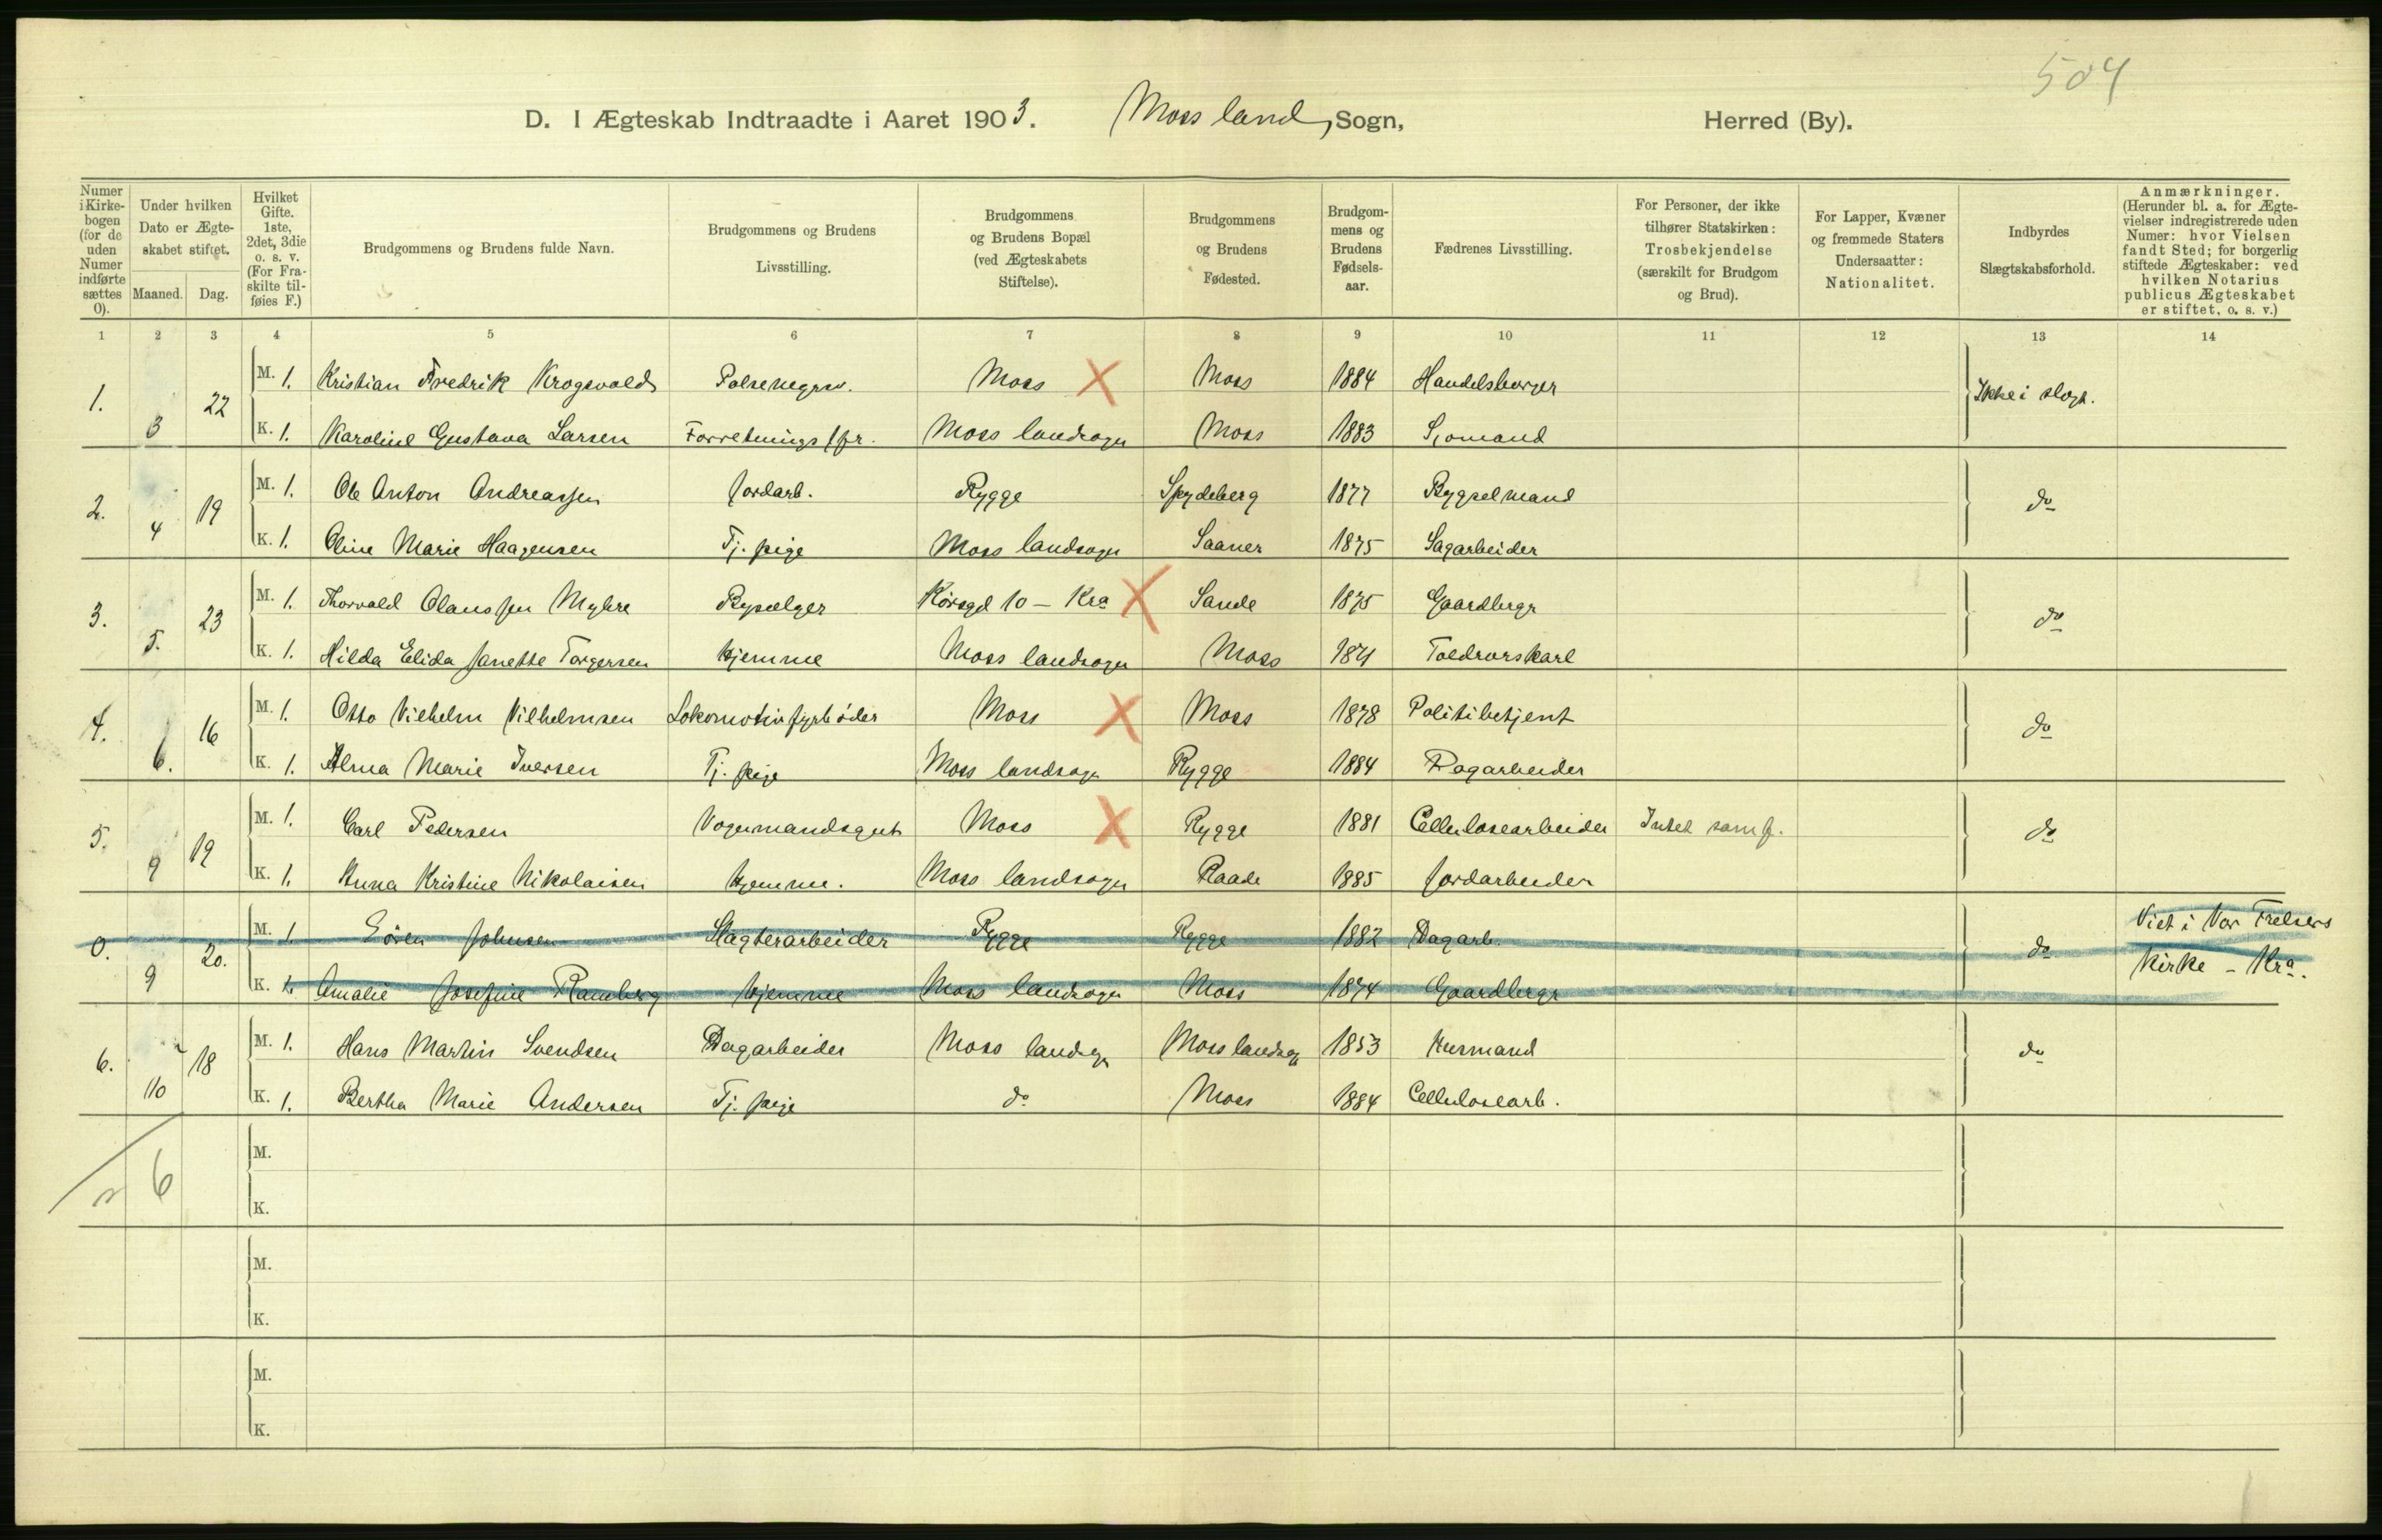 504
D. I Ægteskab Indtraadte i Aaret 1903. Moss land Sogn, Herred (By).
Numer i Kirkebogen (for de uden Numer indførte sættes 0).
Under hvilken Dato er Ægteskabet stiftet.
Maaned. Dag.
Hvilket Gifte. 1ste, 2det, 3die o. s. v. (For Fraskilte tilføies F.)
Brudgommens og Brudens fulde Navn.
Brudgommens og Brudens Livsstilling.
Brudgommens og Brudens Bopæl (ved Ægteskabets Stiftelse).
Brudgommens og Brudens Fødested.
Brudgommens og Brudens Fødselsaar.
Fædrenes Livsstilling.
For Personer, der ikke tilhører Statskirken: Trosbekjendelse (særskilt for Brudgom og Brud).
For Lapper, Kvæner og fremmede Staters Undersaatter: Nationalitet.
Indbyrdes Slægtskabsforhold.
Anmærkninger. (Herunder bl. a. for Ægtevielser indregistrerede uden Numer: hvor Vielsen fandt Sted; for borgerlig stiftede Ægteskaber: ved hvilken Notarius publicus Ægteskabet er stiftet, o. s. v.)
1 2 3 4 5 6 7 8 9 10 11 12 13 14
1. 3 22 M. 1. Kristian Fredrik Krogsvold Moss Moss 1884 Handelsborger Ikke i slægt.
K. 1. Karoline Gustava Larsen Moss landsogn Moss 1883 Sjømand
2. 4 19 M. 1. Ole Anton Andreassen Jordarb. Rygge Spydeberg 1877 Bygselmand do
K. 1. Oline Marie Haagensen Tj. pige Moss landsogn Saaner 1875 Sagarbeider
3. 5. 23 M. 1. Thorvald Olaussen Myhre Bysælger 10 - Kra Sande 1875 Gaardbrgr do
K. 1. Hilda Elida Janette Torgersen Hjemme Moss landsogn Moss 1871 Toldrorskarl
4. 6. 16 M. 1. Otto Vilhelm Vilhelmsen Lokomotivfyrbøder Moss Moss 1878 Politibetjent do
K. 1. Alma Marie Iversen Tj. pige Moss landsogn Rygge 1884 Dagarbeider
5. 9 19 M. 1. Carl Pedersen Vognmandsgut Moss Rygge 1881 Cellulosearbeider Intet samf. do
K. 1. Anna Kristine Nikolaisen Hjemme. Moss landsogn Raade 1885 Jordarbeider
0. 9 20. M. 1. Sören Johnsen Slagterarbeider Rygge Rygge 1882 Dagarb. do Viet i Vor Frelsers
K. 1. Amalie Josefine Ramberg Hjemme Moss landsogn Moss 1874 Gaardbrgr Kirke - Kra.
6. 10 18 M. 1. Hans Martin Svendsen Dagarbeider Moss landsogn Moss landsogn 1853 Husmand do
K. 1. Bertha Marie Andersen Tj. pige do Moss 1884 Cellulosearb.
6 M.
K.
M.
K.
M.
K.